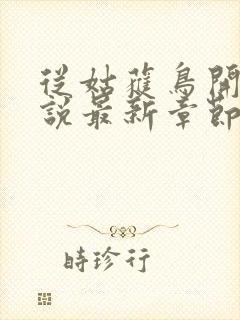 從姑蘿鳥開
說最新章節
時珍行